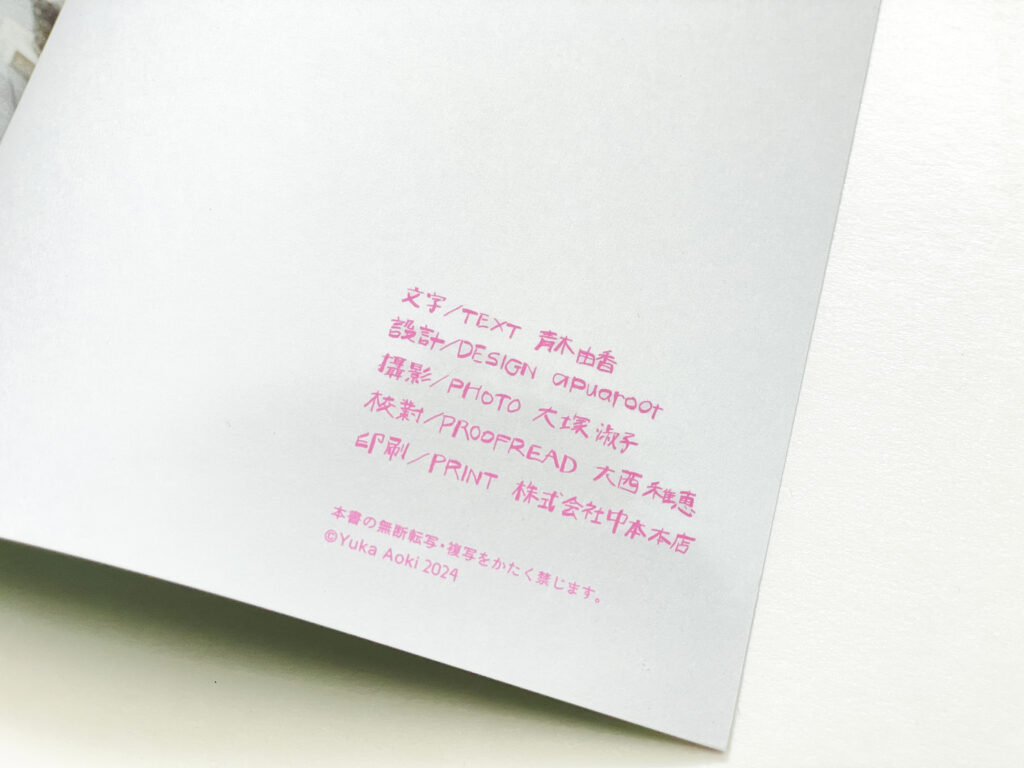 文字/TEXT 青木由香
設計/DESIGN apuaroot
攝影/PHOTO 大塚淑子
校對/PROOFREAD 大西稚恵
印刷/PRINT 株式会社中本本店
本書の無断転写・複写をかたく禁じます。
©Yuka Aoki 2024